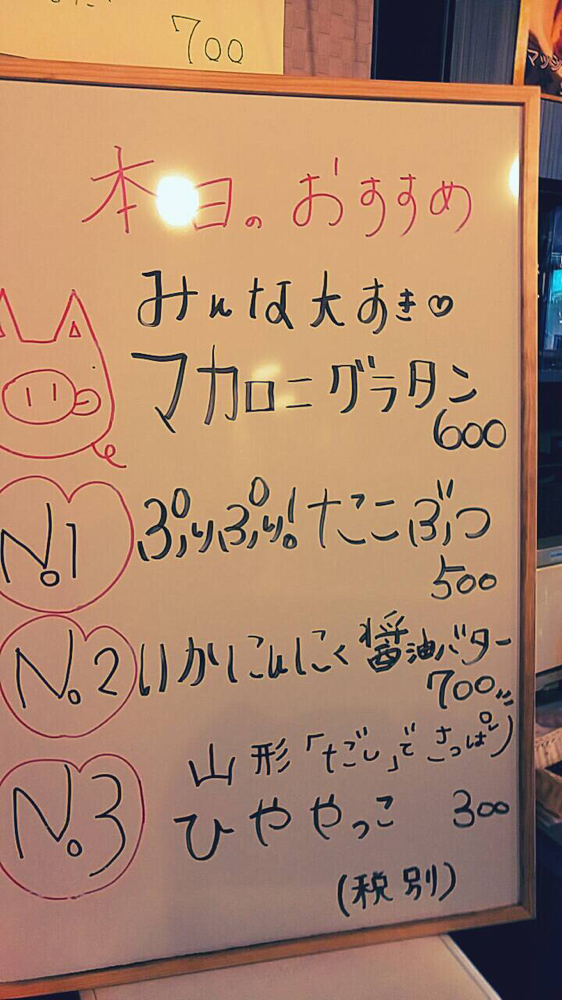 700
マッシ
本日のおすすめ
みんな大すき♡
マカロニグラタン
600
No.1 ぷりぷり!たこぶつ
500
No.2 いかにんにく醤油バター
700
山形「だし」でさっぱり
No.3 ひややっこ 300
(税別)